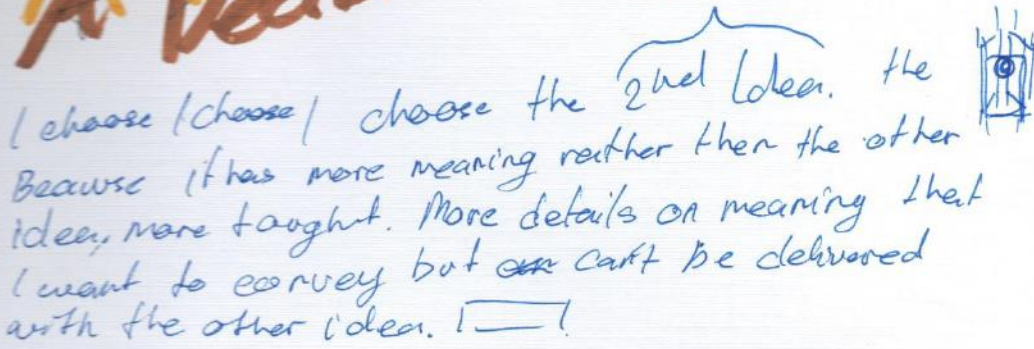 A
I choose I choose I choose the 2nd Idea. the
Because it has more meaning reather then the other
idea, more taught. More details on meaning that
I want to convey but can't be delivered
with the other idea.